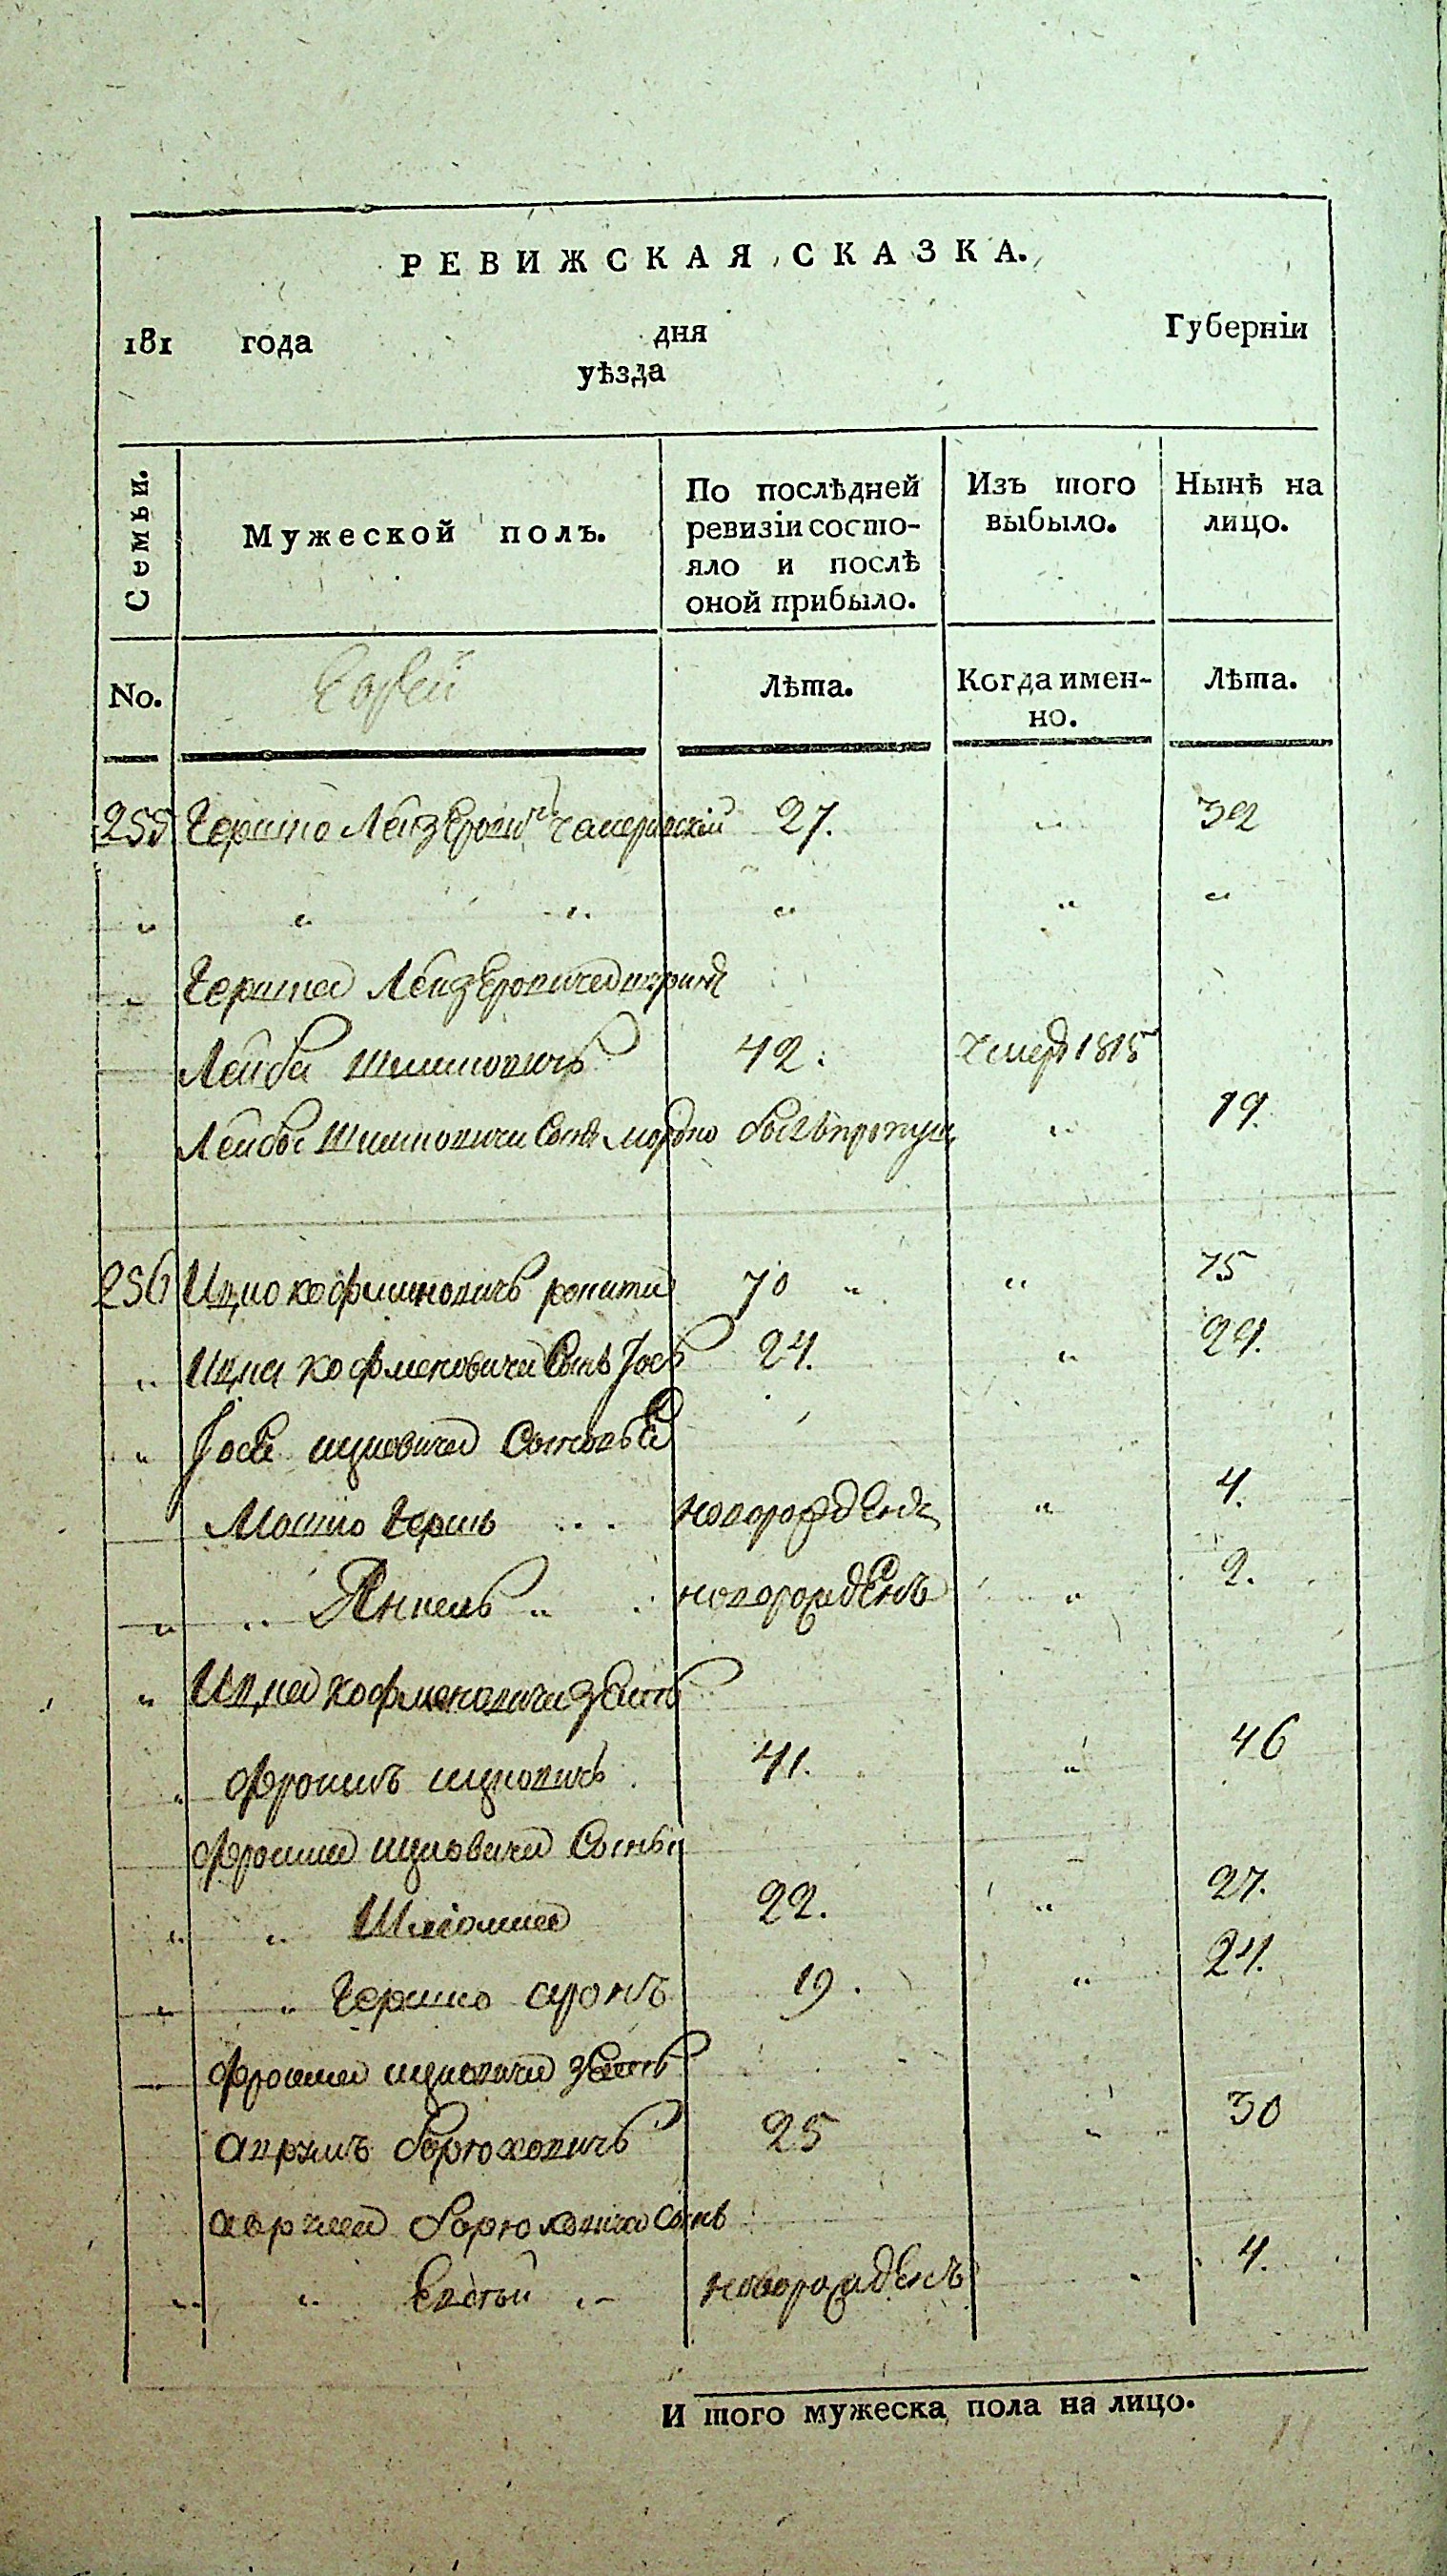 РЕВИЖСКАЯ СКАЗКА.
181 года дня Губерніи
уѣзда
Семьи. Мужеской полъ. По послѣдней ревизіи состояло и послѣ оной прибыло. Изъ того выбыло. Нынѣ на лицо.
No. Евреи Лѣта. Когда имен- но. Лѣта.
255 Гершко Лейзеровичъ 27. " 32
" " " " " "
" Гершка Лейзеровича
Лейба Шмулловичъ 42. умеръ 1815
Лейбы сынъ Мордко былъ пропущ " 19.
256 Ицко кофмановичъ 70 " " 75
" Ицка кофмановича сынъ Іось 24. " 29.
" Іося ицковича сыновья
Мошко Гершъ новорожденъ " 4.
" " Янкель " новорожденъ " 2.
" Ицка кофмановича зять
" Фроимъ ицковичъ 41. " 46
Фроима ицковича сыны
" " Шліома 22. " 27.
" " Гершко аронъ 19. " 24.
Фроима ицковича зять
аврумъ борюховичъ 25 " 30
аврума борюховича сынъ
" " новорожденъ 4.
И того мужеска пола на лицо.